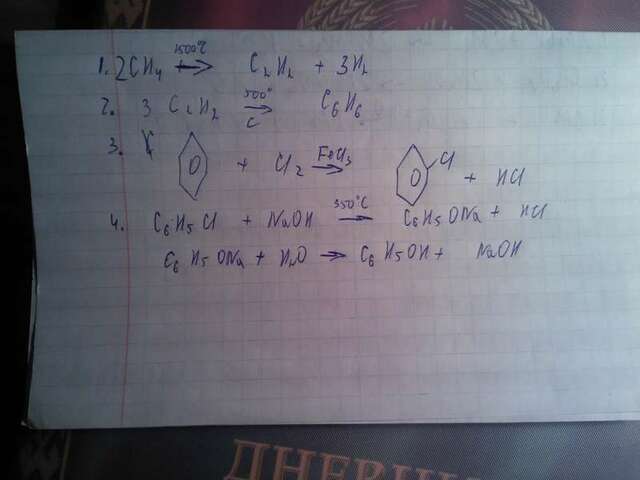 1. 2CH4 1500°C → C2H2 + 3H2
2. 3 C2H2 500° → C C6H6
3. + Cl2 FeCl3 → Cl + HCl
4. C6H5Cl + NaOH 350°C → C6H5ONa + HCl
C6H5ONa + H2O → C6H5OH + NaOH
ДНЕВНИ